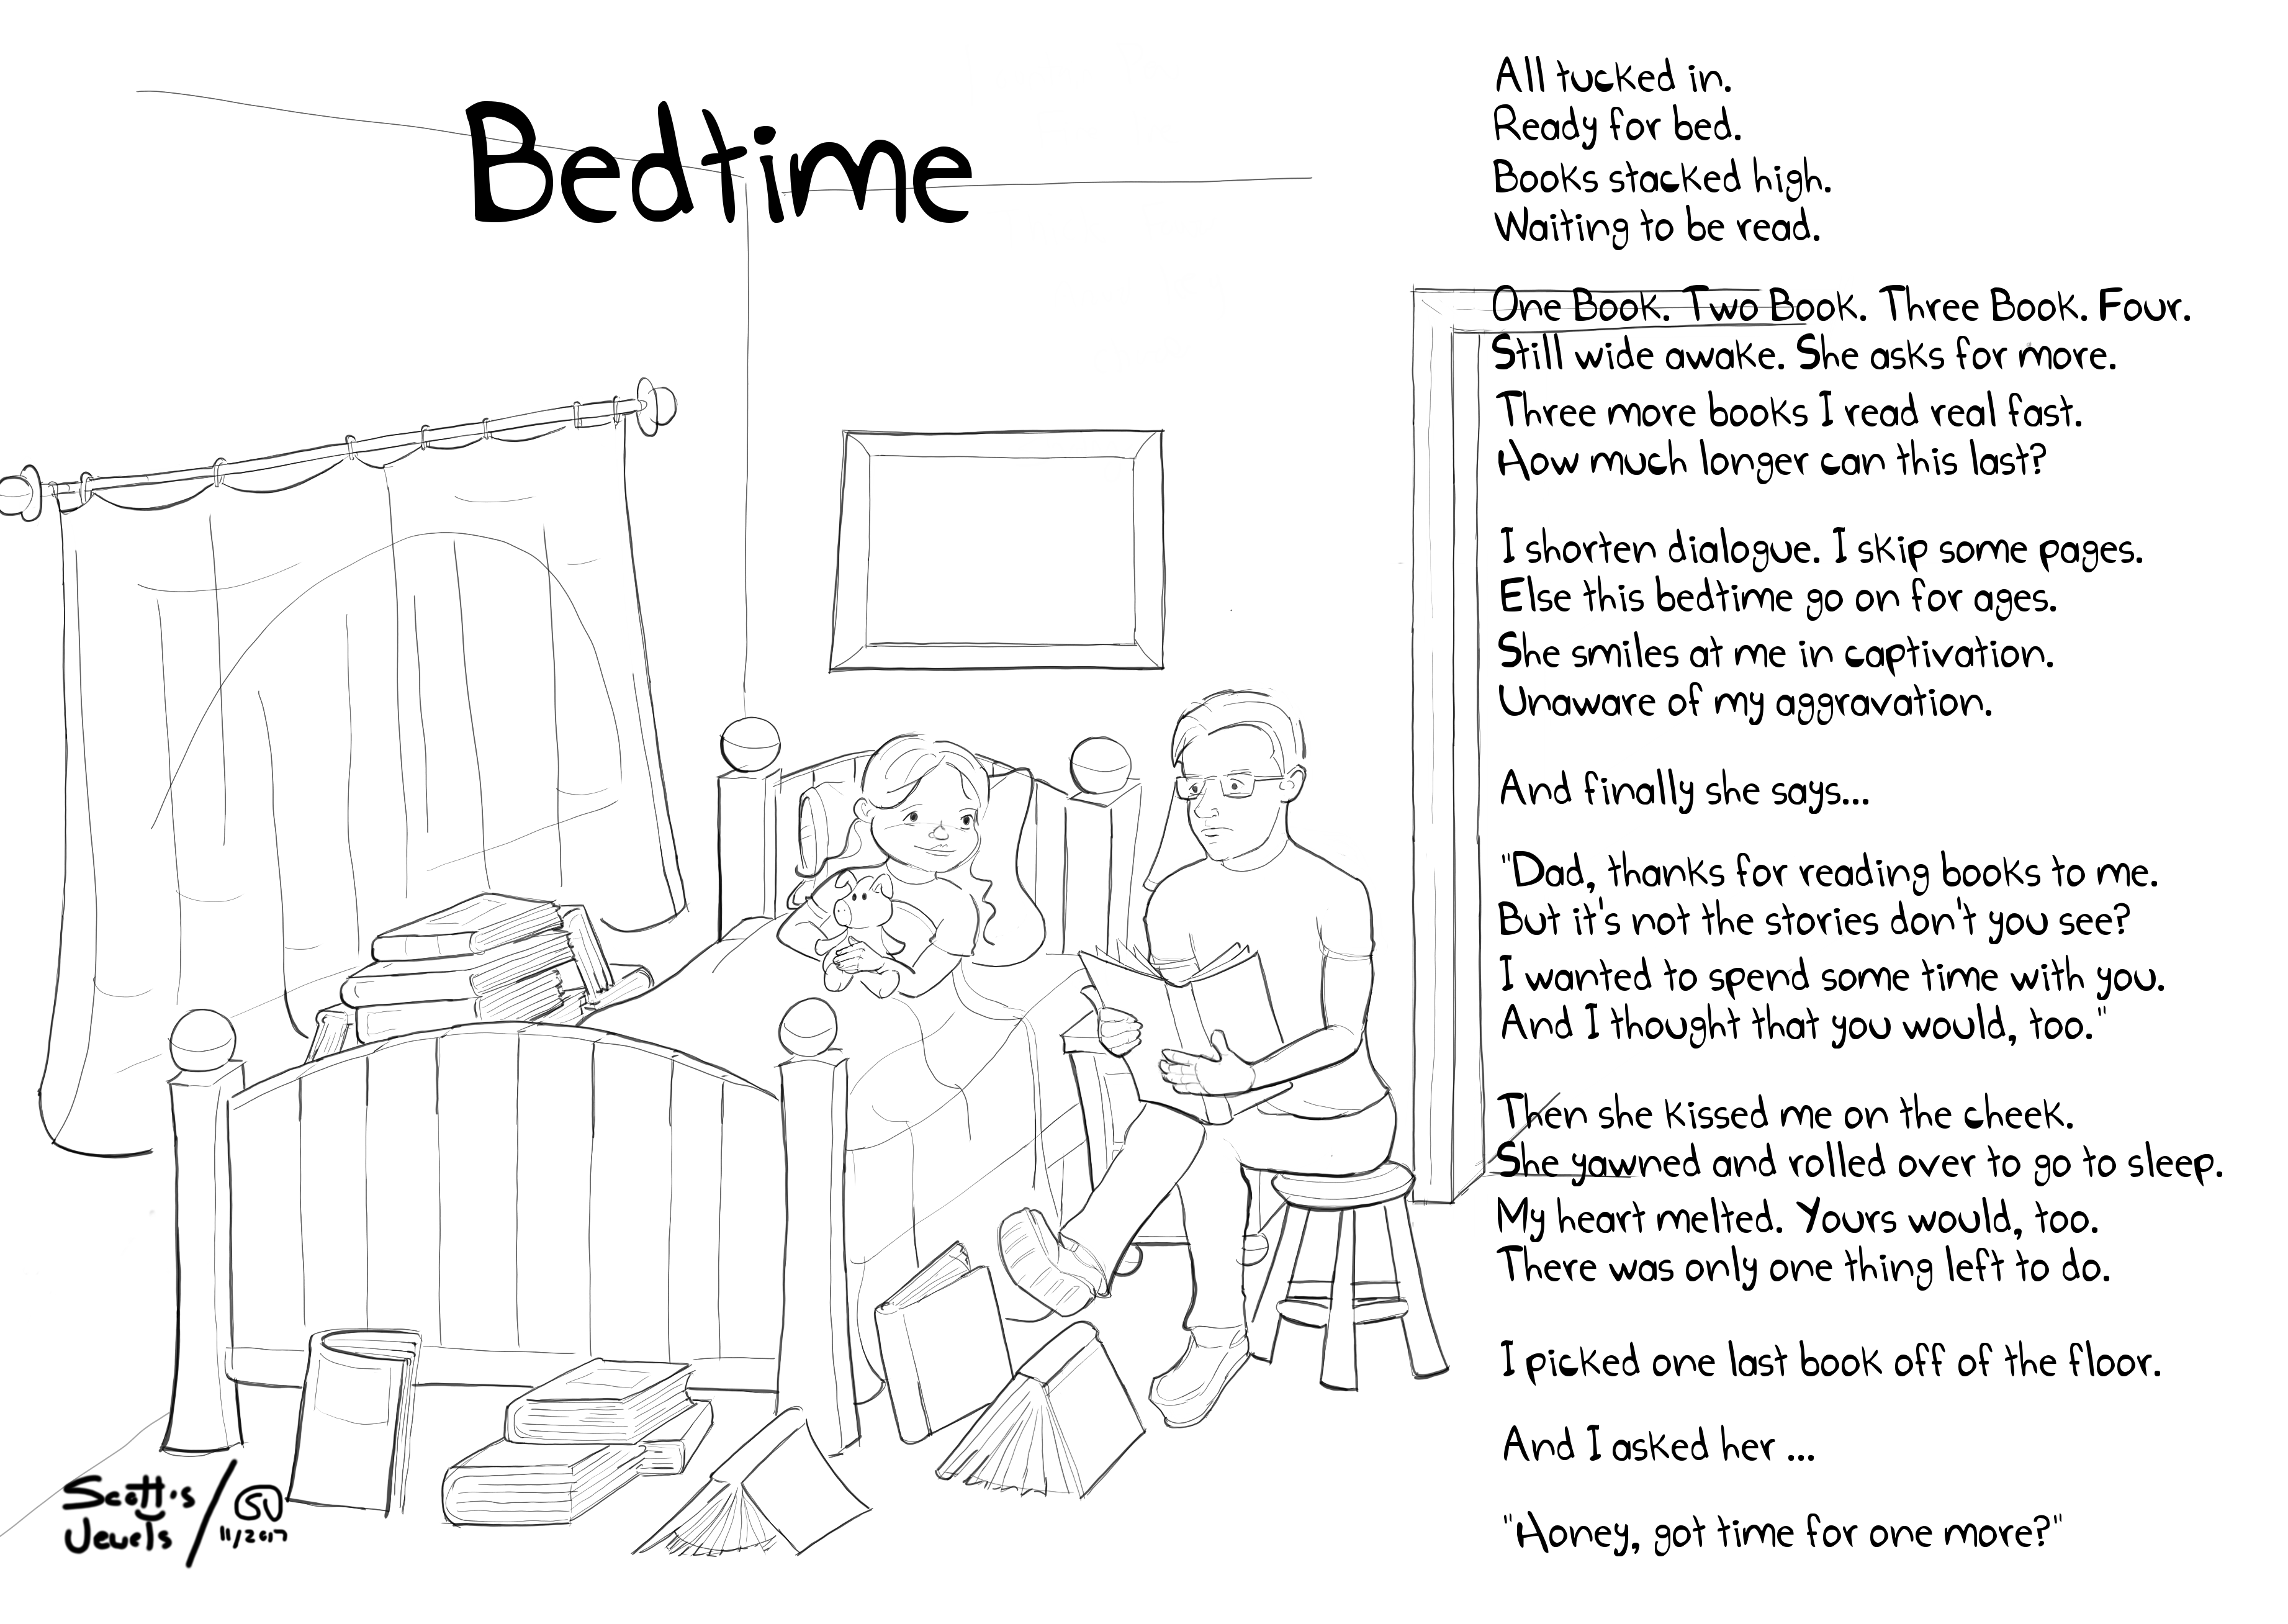 Bedtime
All tucked in.
Ready for bed.
Books stacked high.
Waiting to be read.
One Book. Two Book. Three Book. Four.
Still wide awake. She asks for more.
Three more books I read real fast.
How much longer can this last?
I shorten dialogue. I skip some pages.
Else this bedtime go on for ages.
She smiles at me in captivation.
Unaware of my aggravation.
And finally she says...
"Dad, thanks for reading books to me.
But it's not the stories don't you see?
I wanted to spend some time with you.
And I thought that you would, too."
Then she kissed me on the cheek.
She yawned and rolled over to go to sleep.
My heart melted. Yours would, too.
There was only one thing left to do.
I picked one last book off of the floor.
And I asked her ...
"Honey, got time for one more?"
Scott's
Jewels
SJ
11/2017